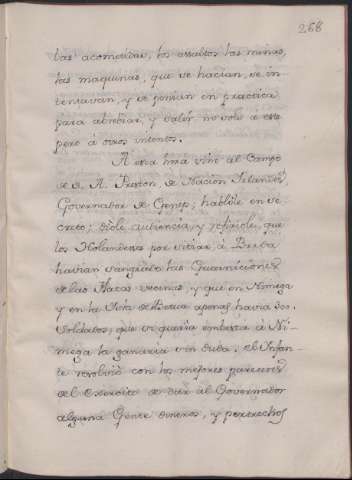 268
las acometidas, los assaltos las minas,
las maquinas, que se hacian, se in
tentavan, y se ponian en practica
para abreviar, y salir no solo á este
pero á otros intentos.
Á esta hora vino al Campo
de S. A. Preston de Nacion Irlandes,
Governador de Genep; hablóle en se
creto; dióle audiencia, y refirióle, que
los Holandeses por sitiar á Breda
havian sangrado las Guarniciones
de las Plazas vecinas, y que en Nimega
y en la Isla de Betua apenas havia dos
Soldados, que si queria embestir á Ni
mega la ganaria sin duda. el Infan
te resolvió con los mejores pareceres
del Exercito de dar al Governador
alguna Gente dineros, y pertrechos